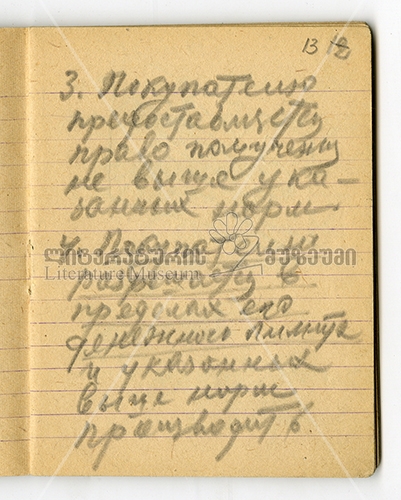 13 12
3. Покупателю
предоставляется
право получения
не выше ука-
занных норм
4. Покупателю
ლიტერატურის მუზეუმი
Literature Museum
разрешается в
пределах его
денежного лимита
и указанных
выше норм
производить